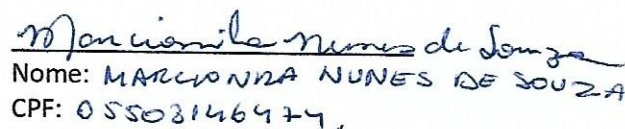 Marcionila Nunes de Souza
Nome: MARCIONILA NUNES DE SOUZA
CPF: 05503146474